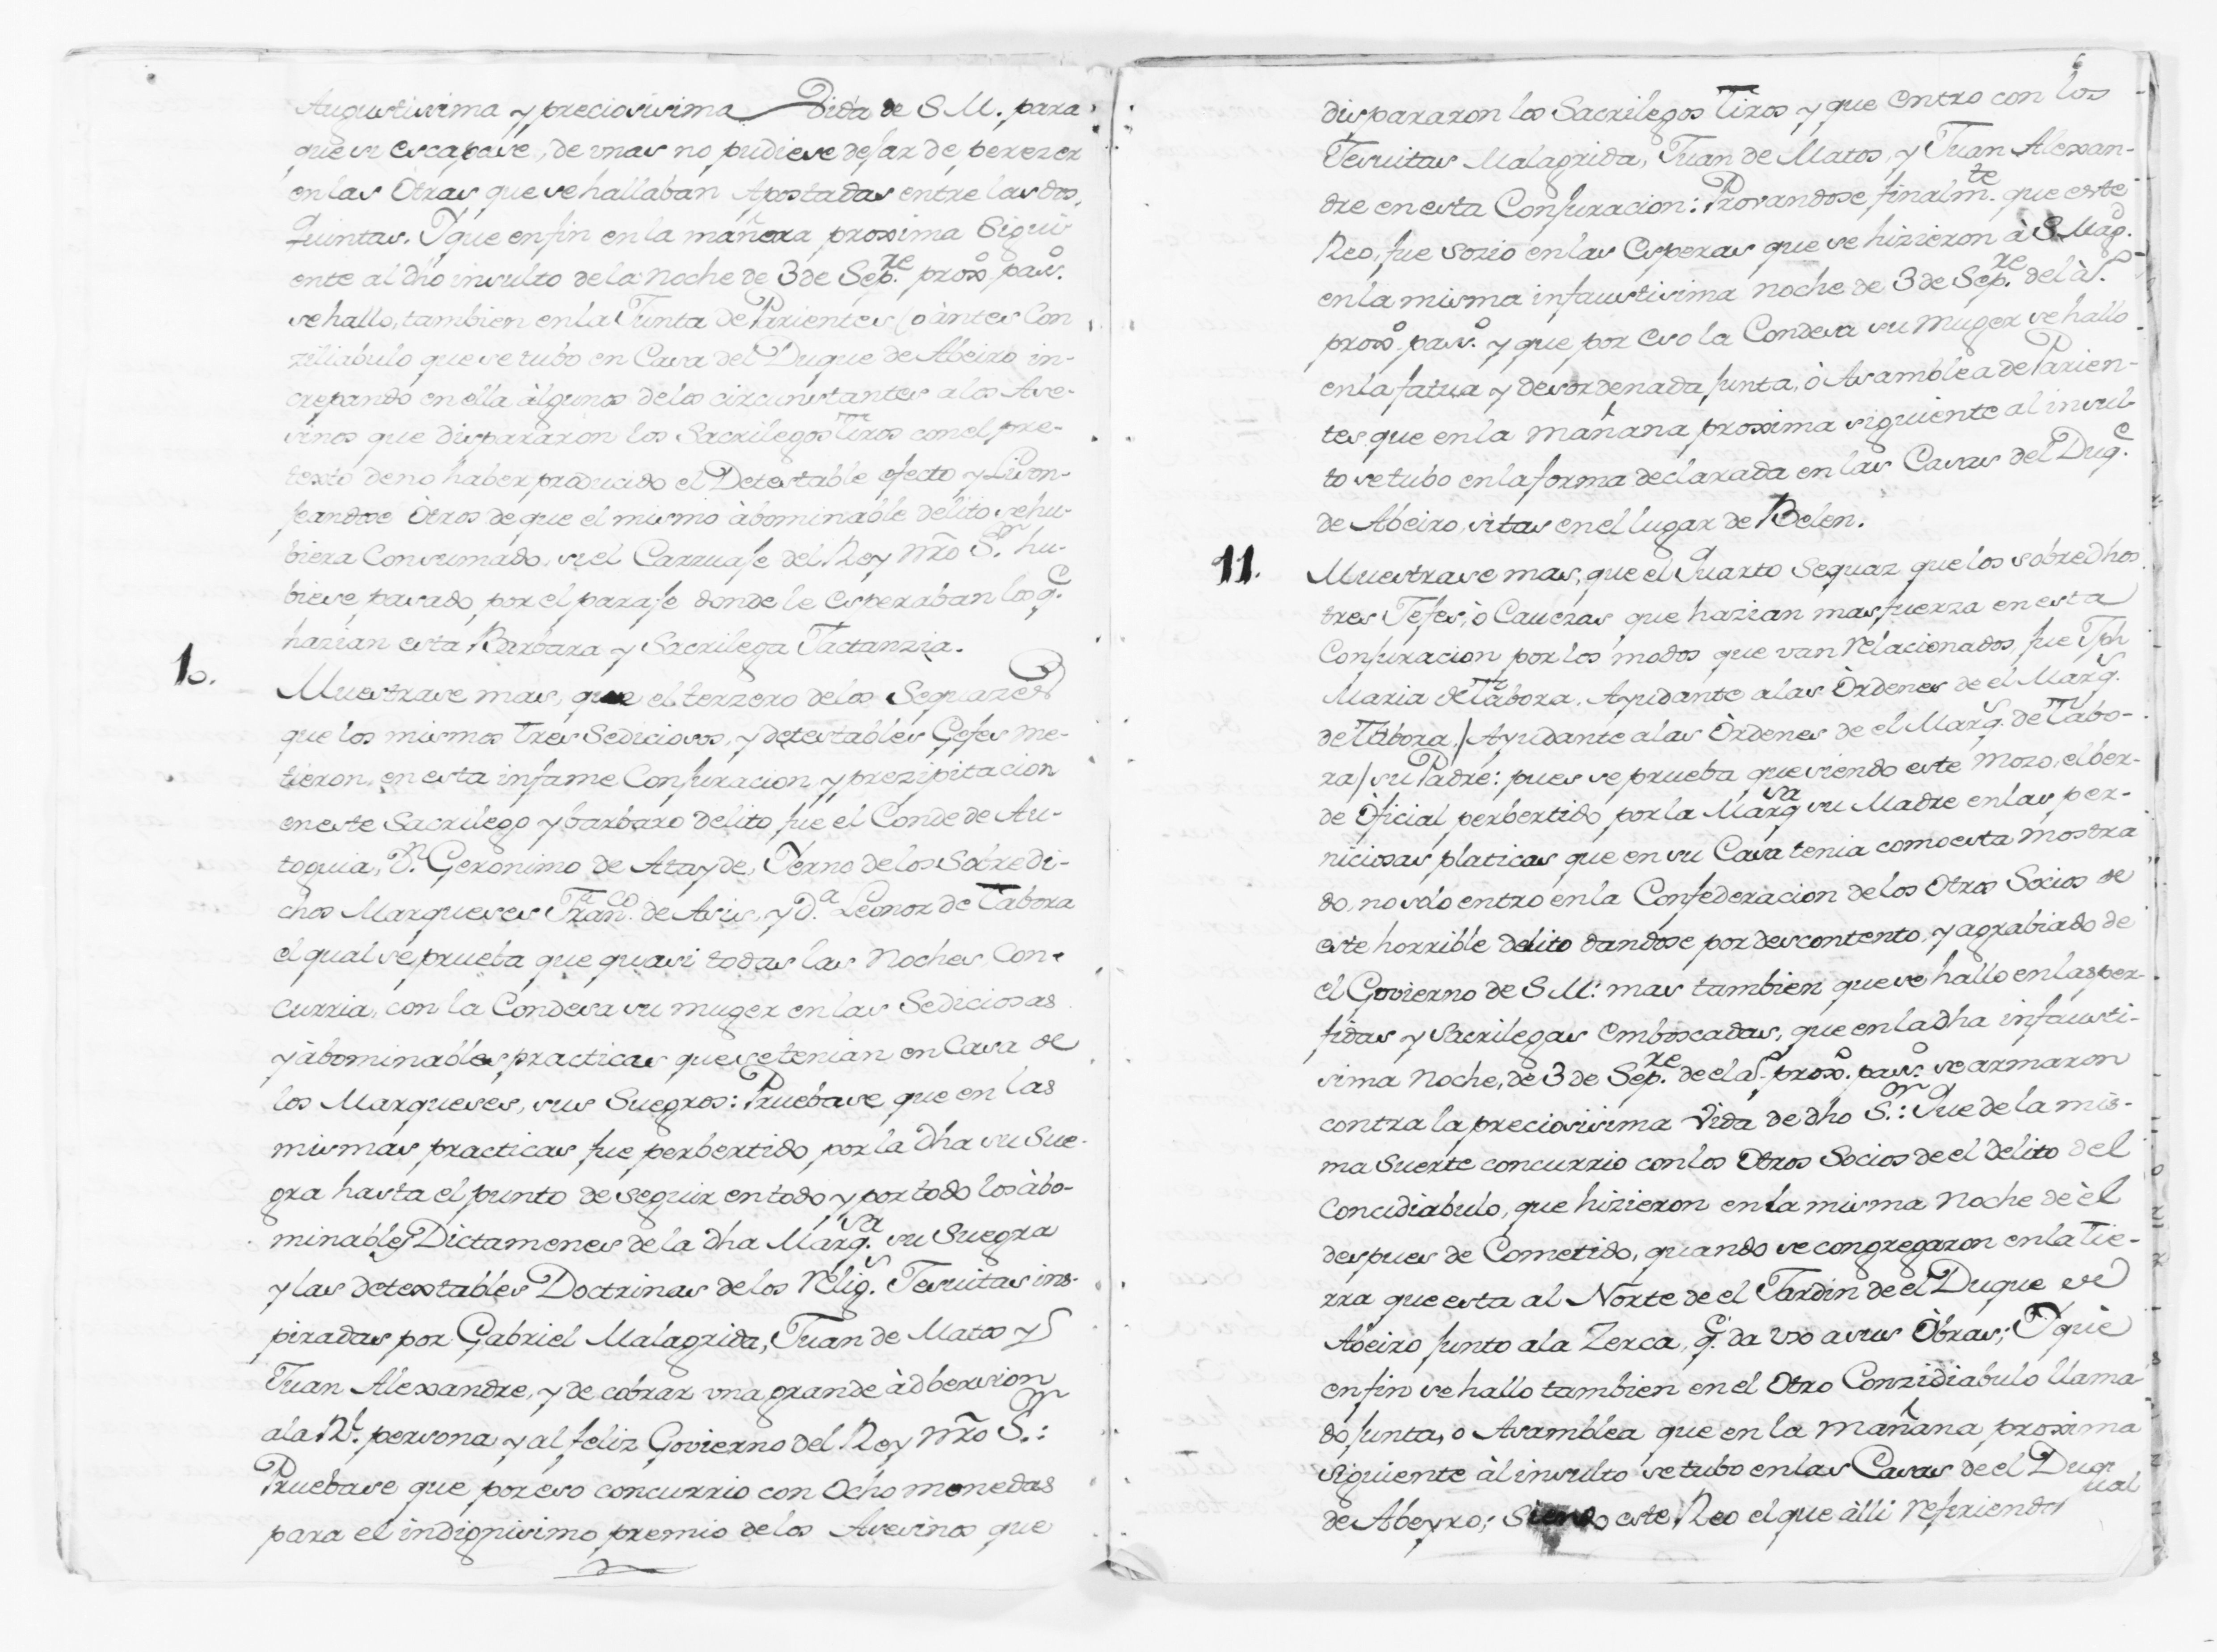 Augustisima y preciosisima Vida de S M. para
que si escapase, de unas no pudiese dejar de perezer
en las Otras que se hallaban Apostadas entre las dos
Quintas. Y que enfin en la mañera proxima Sigui
ente al dho insulto de la noche de 3 de Sep.re proxo. paso.
se hallo, tambien en la Junta de Parientes (o àntes Con
ziliabulo que se tubo en Casa del Duque de Abeiro in-
crepando en ella àlgunos de los circunstantes a los Ase-
sinos que dispararon los Sacrilegos Tiros con el pre-
texto de no haber producido el Detestable efecto y Lison-
jeandose Otros de que el mismo àbominable delito se hu-
biera Consumado, si el Carruaje del Rey nro S.or hu-
biese pasado, por el paraje donde le esperaban los q.e
hazian esta Barbara y Sacrilega Jactanzia.
10.
Muestrase mas, que el terzero de los Sequazes
que los mismos tres Sediciosos, y detestables Gefes me-
tieron, en esta infame Conjuracion, y prezipitacion
en este Sacrilego y barbaro delito fue el Conde de Au-
toguia, D.n Geronimo de Atayde, Yerno de los Sobredi-
chos Marqueses Fran.co de Asis, y D.a Leonor de Tabora
el qual se prueba que quasi todas las noches, Con-
curria, con la Condesa su muger en las Sediciosas
y àbominables practicas que se tenian en Casa de
los Marqueses, sus Suegros: Pruebase que en las
mismas practicas fue perbertido por la dha su Sue-
gra hasta el punto de seguir en todo y por todo los àbo-
minables Dictamenes de la dha Marq.sa su Suegra
y las detextables Doctrinas de los Relig.s Jesuitas ins-
piradas por Gabriel Malagrida, Juan de Matos y
Juan Alexandre, y de cobrar una grande àdbersion
a la R.l persona y al feliz Govierno del Rey nro S.or:
Pruebase que por eso concurrio con Ocho monedas
para el indignisimo premio de los Asesinos que
6
dispararon los Sacrilegos Tiros y que Entro con los
Jesuitas Malagrida, Juan de Matos, y Juan Alexan-
dre en esta Conjuracion: Provandose finalm.te que este
Reo, fue sozio en las Esperas que se hizieron à S Mag.d
en la misma infaustisima noche de 3 de Sep.re del à.o
proxo. paso. y que por eso la Condesa su muger se hallo
en la fatua y desordenada junta, ò Asamblea de Parien-
tes que en la mañana proxima siguiente al insul-
to se tubo en la forma declarada en las Casas del Duq.e
de Abeiro, sitas en el lugar de Belen.
11.
Muestrase mas, que el Quarto Sequaz que los sobredhos
tres Jefes, ò Cauezas que hazian mas fuerza en esta
Conjuracion por los modos que van Relacionados, fue Jph
Maria de Tabora, Ayudante a las Òrdenes de el Marq.s
de Tabora,/ Ayudante a las Òrdenes de el Marq.s de Tabo-
ra/ su Padre: pues se prueba que siendo este mozo, el ser-
de Oficial perbertido por la Marq.sa su Madre en las per-
niciosas platicas que en su Casa tenia como esta mostra
do, no solo entro en la Confederacion de los Otros Socios de
este horrible delito dandose por descontento, y agrabiado de
el Govierno de S M: mas tambien que se hallo en las per-
fidas y Sacrilegas Emboscadas, que en la dha infausti-
sima noche, de 3 de Sep.re de el à.o proxo. paso. se armaron
contra la preciosisima Vida de dho S.or: Que de la mis-
ma Suerte concurrio con los Otros Socios de el delito del
Concidiabulo, que hizieron en la misma noche de èl
despues de Cometido, quando se congregaron en la Tie-
rra que esta al Norte de el Jardin de el Duque de
Abeiro junto a la Zerca, q.e da uso a sus Òbras; Y què
en fin se hallo tambien en el Otro Conzidiabulo llama
do junta, o Asamblea que en la mañana proxima
siguiente àl insulto se tubo en las Casas de el Duq.e
de Abeyro; Siendo este Reo el que àlli refiriendo